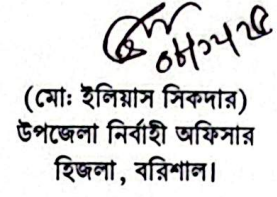 (মোঃ ইলিয়াস সিকদার)
উপজেলা নির্বাহী অফিসার
হিজলা, বরিশাল।